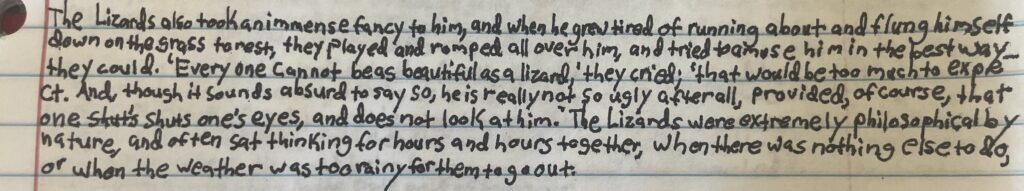 The Lizards also took an immense fancy to him, and when he grew tired of running about and flung himself
down on the grass to rest, they played and romped all over him, and tried to amuse him in the best way
they could. 'Every one cannot be as beautiful as a lizard,' they cried; 'that would be too much to expe
ct. And, though it sounds absurd to say so, he is really not so ugly after all, provided, of course, that
one shut's shuts one's eyes, and does not look at him.' The Lizards were extremely philosophical by
nature, and often sat thinking for hours and hours together, when there was nothing else to do,
or when the weather was too rainy for them to go out.